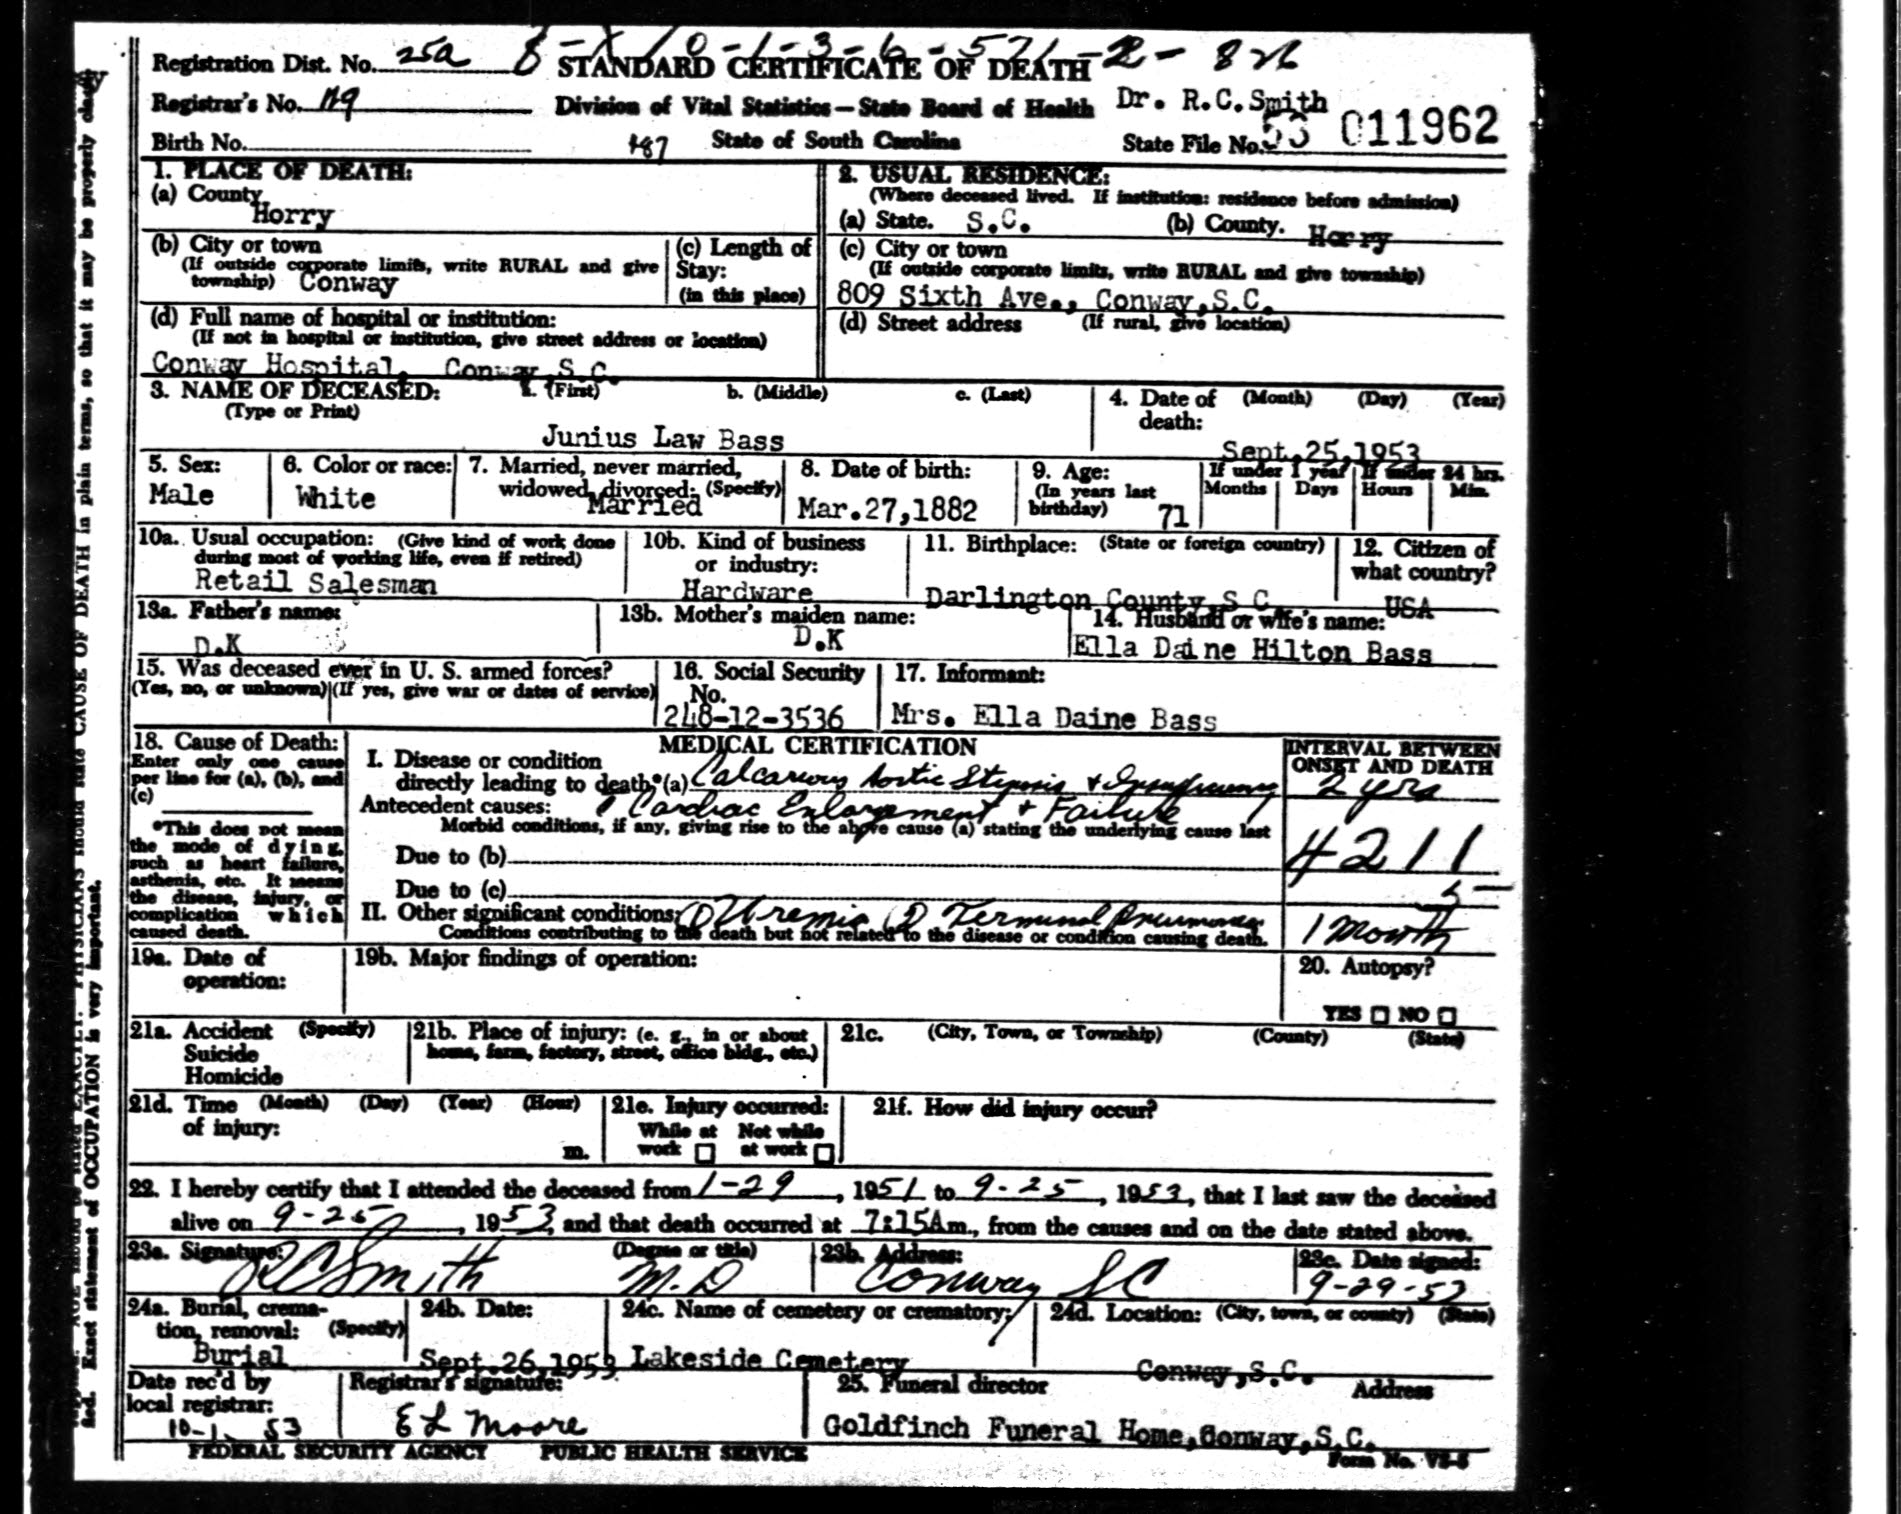 Registration Dist. No. 25a 8-X10-1-3-6-571-2-826
STANDARD CERTIFICATE OF DEATH
Registrar's No. 119 Division of Vital Statistics—State Board of Health Dr. R.C.Smith
Birth No. 487 State of South Carolina State File No. 53 011962
1. PLACE OF DEATH:
(a) County
Horry
2. USUAL RESIDENCE:
(Where deceased lived. If institution: residence before admission)
(a) State. S.C. (b) County. Horry
(b) City or town
(If outside corporate limits, write RURAL and give
township) Conway
(c) Length of
Stay:
(in this place)
(c) City or town
(If outside corporate limits, write RURAL and give township)
809 Sixth Ave., Conway,S.C.
(d) Full name of hospital or institution:
(If not in hospital or institution, give street address or location)
Conway Hospital, Conway,S.C.
(d) Street address (If rural, give location)
3. NAME OF DECEASED: a. (First) b. (Middle) c. (Last)
(Type or Print)
Junius Law Bass
4. Date of (Month) (Day) (Year)
death:
Sept.25,1953
5. Sex:
Male
6. Color or race:
White
7. Married, never married,
widowed, divorced: (Specify)
Married
8. Date of birth:
Mar.27,1882
9. Age:
(In years last
birthday) 71
If under 1 year If under 24 hrs.
Months Days Hours Min.
10a. Usual occupation: (Give kind of work done
during most of working life, even if retired)
Retail Salesman
10b. Kind of business
or industry:
Hardware
11. Birthplace: (State or foreign country)
Darlington County,S C
12. Citizen of
what country?
USA
13a. Father's name:
D.K
13b. Mother's maiden name:
D.K
14. Husband or wife's name:
Ella Daine Hilton Bass
15. Was deceased ever in U. S. armed forces?
(Yes, no, or unknown) (If yes, give war or dates of service)
16. Social Security
No.
248-12-3536
17. Informant:
Mrs. Ella Daine Bass
18. Cause of Death:
Enter only one cause
per line for (a), (b), and
(c)
*This does not mean
the mode of dying,
such as heart failure,
asthenia, etc. It means
the disease, injury, or
complication which
caused death.
MEDICAL CERTIFICATION
I. Disease or condition
directly leading to death*(a) Calcareous Aortic Stenosis + Insufficiency
Antecedent causes: Cardiac Enlargement + Failure
Morbid conditions, if any, giving rise to the above cause (a) stating the underlying cause last
Due to (b)
Due to (c)
II. Other significant conditions: (1) Uremia (2) Terminal Pneumonia
Conditions contributing to the death but not related to the disease or condition causing death.
INTERVAL BETWEEN
ONSET AND DEATH
2 yrs
4211
5-
1 Month
19a. Date of
operation:
19b. Major findings of operation:
20. Autopsy?
YES NO
21a. Accident (Specify)
Suicide
Homicide
21b. Place of injury: (e. g., in or about
home, farm, factory, street, office bldg., etc.)
21c. (City, Town, or Township) (County) (State)
21d. Time (Month) (Day) (Year) (Hour)
of injury:
m.
21e. Injury occurred:
While at Not while
work at work
21f. How did injury occur?
22. I hereby certify that I attended the deceased from 1-29, 1951 to 9-25, 1953, that I last saw the deceased
alive on 9-25, 1953, and that death occurred at 7:15Am., from the causes and on the date stated above.
23a. Signature: (Degree or title)
RC Smith M.D
23b. Address:
Conway SC
23c. Date signed:
9-29-53
24a. Burial, crema-
tion, removal: (Specify)
Burial
24b. Date:
Sept.26,1953
24c. Name of cemetery or crematory:
Lakeside Cemetery
24d. Location: (City, town, or county) (State)
Conway,S.C.
Date rec'd by
local registrar:
10-1 53
Registrar's signature:
E L Moore
25. Funeral director Address
Goldfinch Funeral Home,Conway,S.C.
FEDERAL SECURITY AGENCY PUBLIC HEALTH SERVICE Form No. VS-5
PHYSICIANS should state CAUSE OF DEATH in plain terms, so that it may be properly classi-
fied. Exact statement of OCCUPATION is very important.